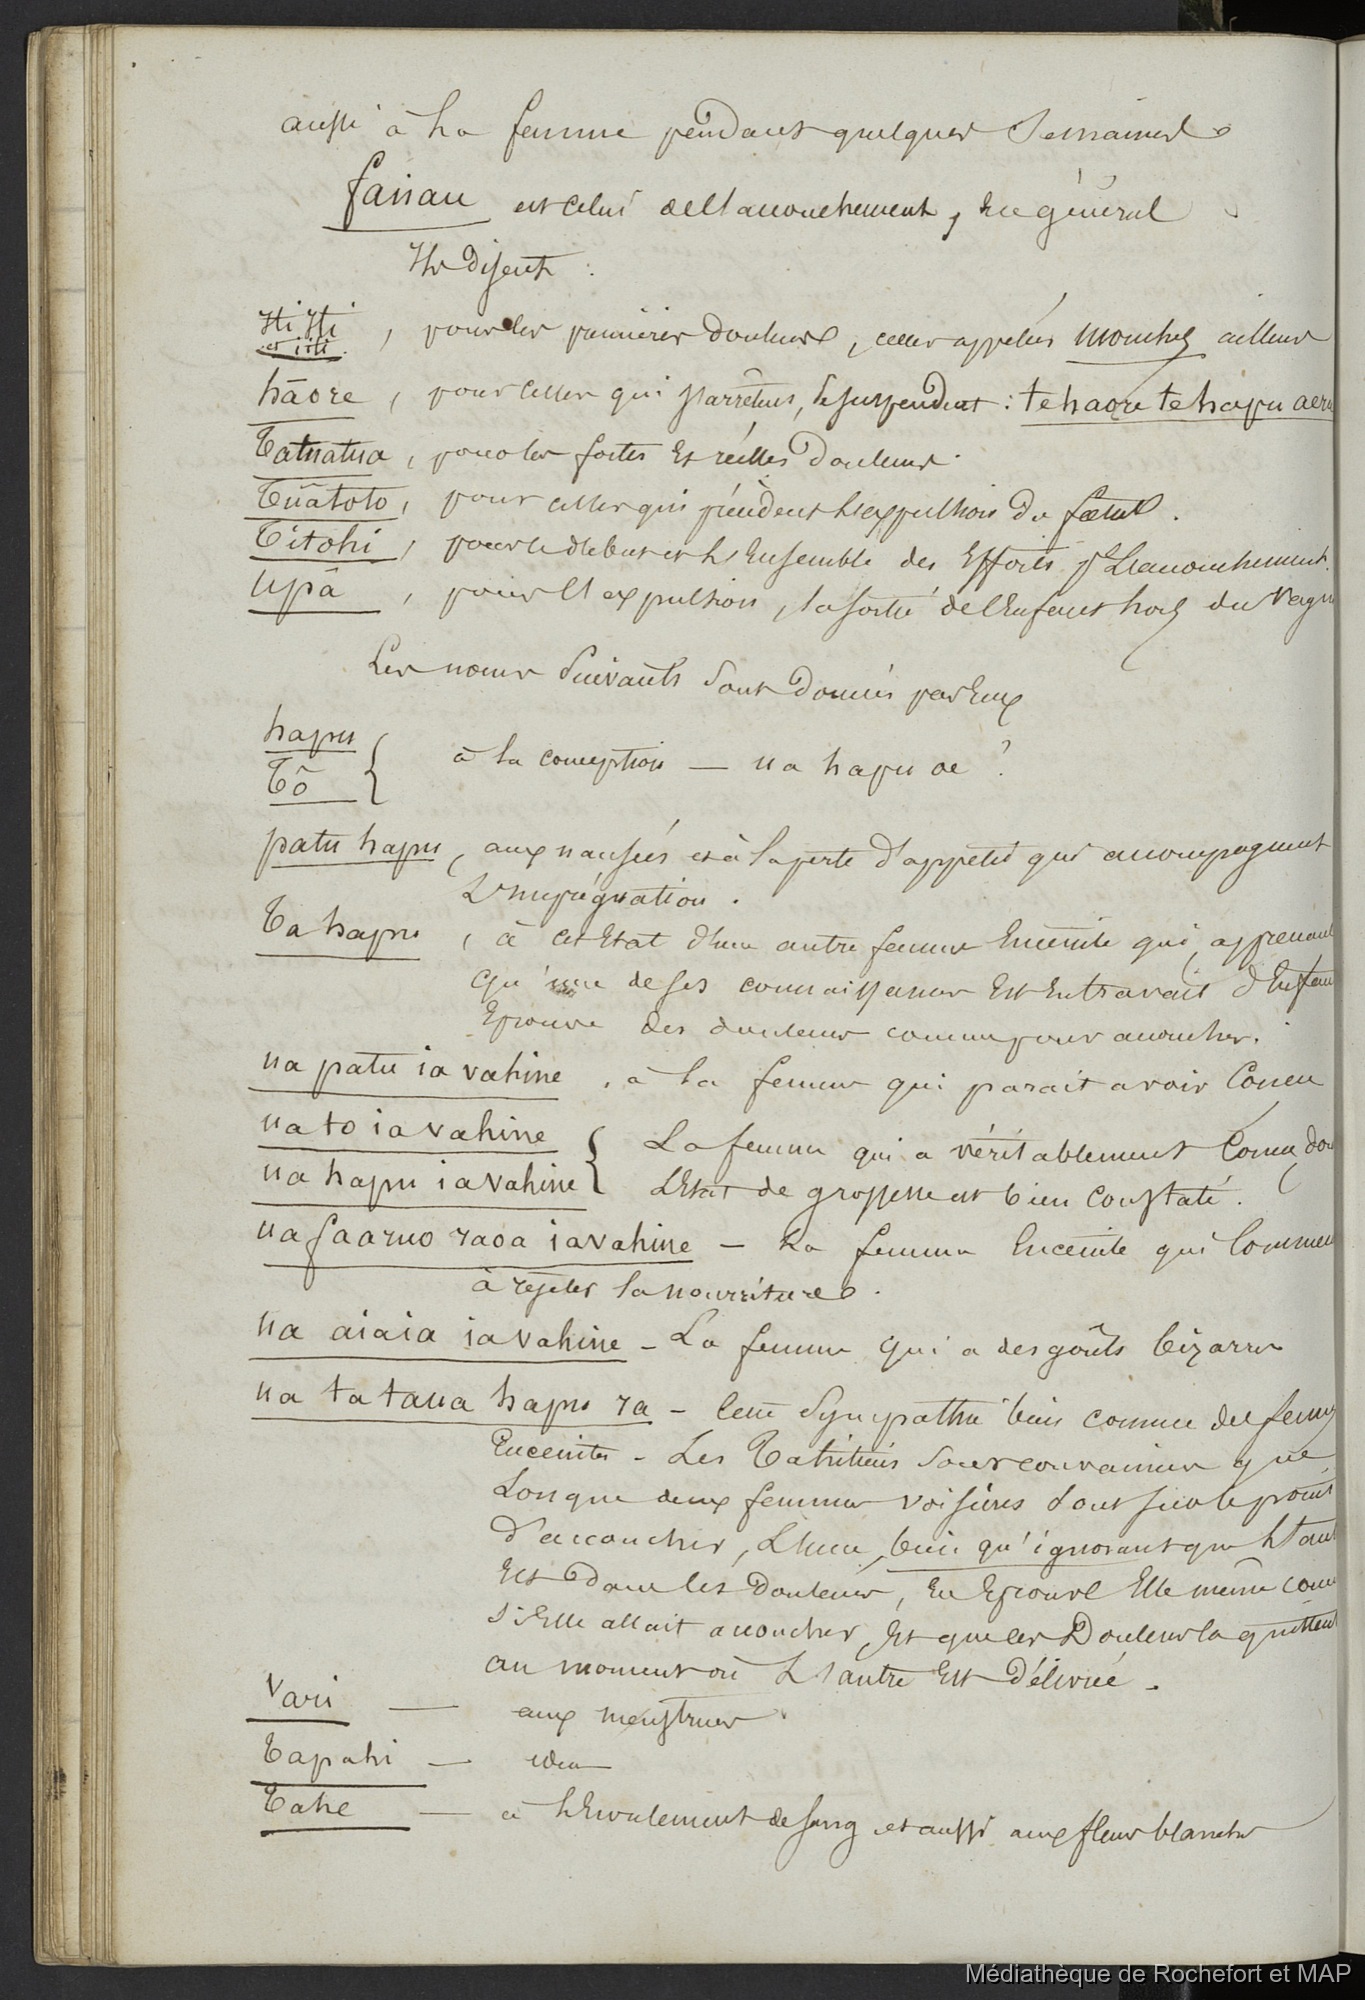 aussi à la femme pendant quelques Semaines
fanau est celui de l'accouchement, En général
Ils disent :
Iti Iti
et iti , pour les premières douleurs, celles appelées mouches ailleurs
hāore , pour celles qui s'arrêtent, se suspendent : te haore te hapu aera
Tatuatua , pour les fortes Et réelles Douleurs.
Tūātoto , pour celles qui précèdent l'expulsion du fœtus.
Titohi , pour le début et l'Ensemble des Efforts pr L'accouchement.
Upā , pour l'expulsion, la sortie de l'Enfant hors du vagin
Les noms Suivants Sont Donnés par Eux
hapu
Tō { à la conception — ua hapu oe ?
patu hapu , aux nausées et à la perte d'appétit qui accompagnent
L'imprégnation.
Ta hapu , à cet Etat d'une autre femme Enceinte qui, apprenant
qu'une de ses connaissances Est En travail d'Enfant
Eprouve des douleurs comme pour accoucher.
ua patu ia vahine , à la femme qui parait avoir Conçu
ua to ia vahine
ua hapu ia vahine } La femme qui a véritablement Conçu, dont
L'Etat de grossesse est bien Constaté.
ua faaruo raoa ia vahine — La femme Enceinte qui Commence
à rejeter la nourriture.
ua aiaia ia vahine — La femme qui a des goûts bizarres
ua ta taua hapu ra — Cette Sympathie bien connue des femmes
Enceintes — Les Tahitiens Sont convaincus que
Lorsque deux femmes voisines Sont Sur le point
D'accoucher, L'une, bien qu'ignorant que l'autre
Est Dans les Douleurs, En Eprouve Elle même comme
Si Elle allait accoucher, Et que les Douleurs la quittent
au moment où L'autre Est Délivrée.
Vari — aux menstrues
Tapahi — idem
Tahe — à l'Ecoulement de sang et aussi aux fleurs blanches
Médiathèque de Rochefort et MAP